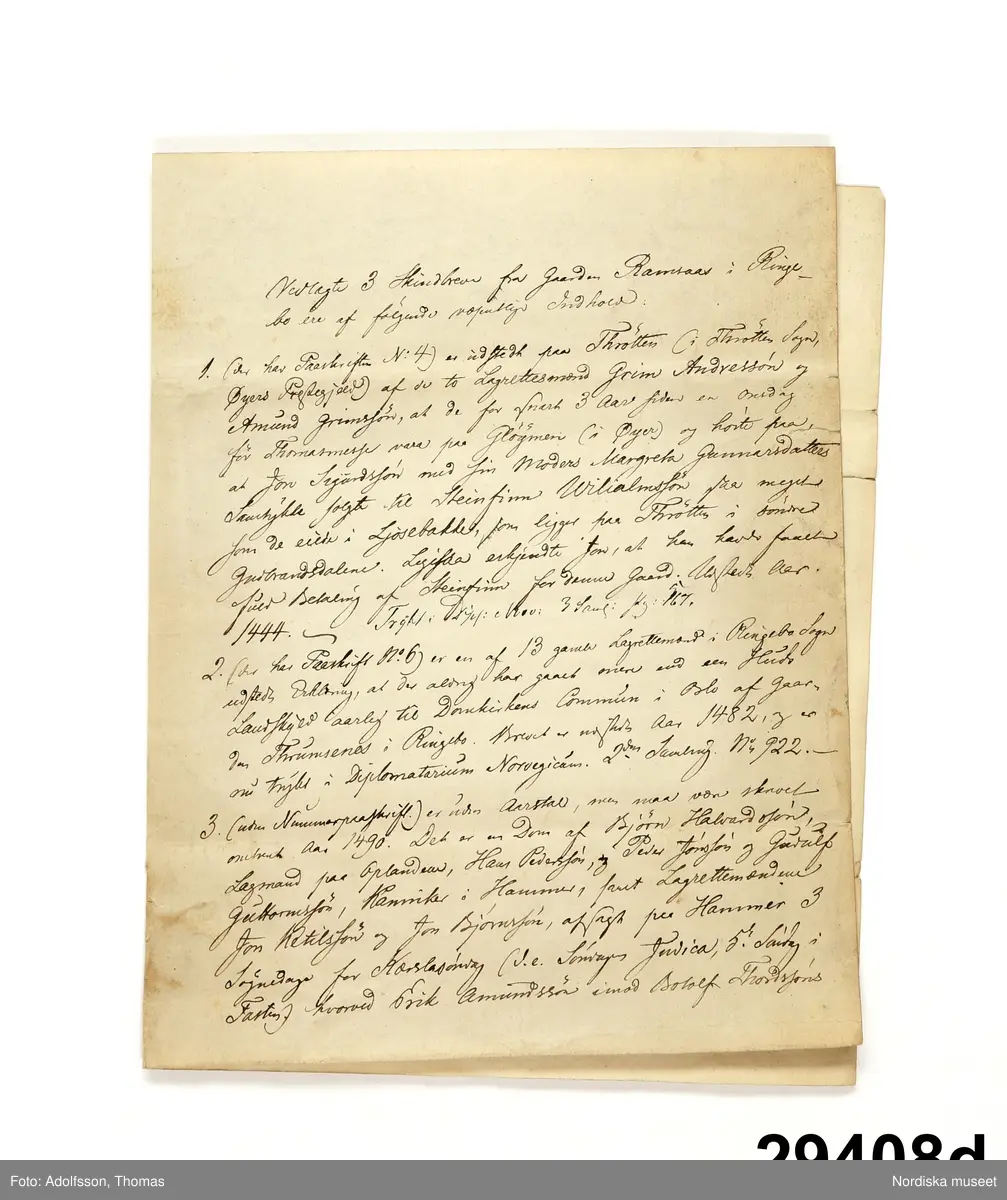 Vedlagte 3 Skindbreve fra Gaarden Ramsaas i Ringe-
bo ere af følgende væsentlige Indhold:
1. (der har Paaskriften No 4) er udstedt paa Thrötten (i Thrötten Sogn,
Øyers Præstegjæld) af de to Lagrettesmænd Grim Andressön og
Amund Grimssön, at de for snart 3 Aar siden en Onsdag
för Thomasmesse vare paa Glöymen (i Øyer) og hörte paa,
at Jon Sigurdssön med sin Moders Margreta Gunnarsdatters
Samtykke solgte til Steinfinn Wilialmssön saa meget
som de eiede i Ljösebakke, som ligger paa Thrötten i söndre
Gudbrandsdalene. Ligesaa erkjendte Jon, at han havde faaet
fuld Betaling af Steinfinn for denne Gaard. Udstedt Aar
1444. — Trykt i Dipl: Nov: 3 Saml: pg: 567.
2. (der har Paaskrift No 6) er en af 13 gamle Lagrettemænd i Ringebo Sogn
udstedt Erklæring, at der aldrig har gaaet mere end een Huds
Landskyld aarlig til Domkirkens Commun i Oslo af Gaar-
den Thrumsenes i Ringebo. Brevet er udstedt Aar 1482, og er
nu trykt i Diplomatarium Norvegicum. 2den Samling. No 922.—
3. (uden Nummerpaaskrift) er uden Aarstal, men maa være skrevet
omtrent Aar 1490. Det er en Dom af Björn Halvardssön,
Lagmand paa Oplandene, Hans Pederssön, og Peder Jónssön og Gudulf
Guttormssön, Kanniker i Hammer, samt Lagrettemændene
Jon Ketilssön og Jon Björnssön, afsagt paa Hammer 3
Sognedage for Kærslasöndag (d.e. Söndagen Judica, 5te Söndag i
Fasten) hvorved Erik Amundssön imod Botolf Thordssöns
29408d
Foto: Adolfsson, Thomas
Nordiska museet